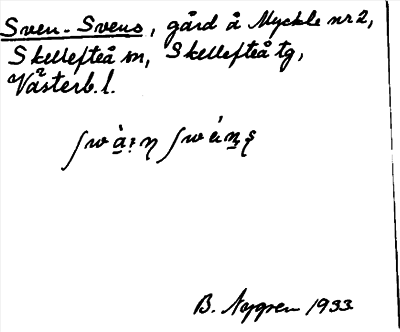 Sven-Svens, gård å Myckle nr 2,
Skellefteå sn, Skellefteå tg,
Västerb. l.
B. Nygren 1933